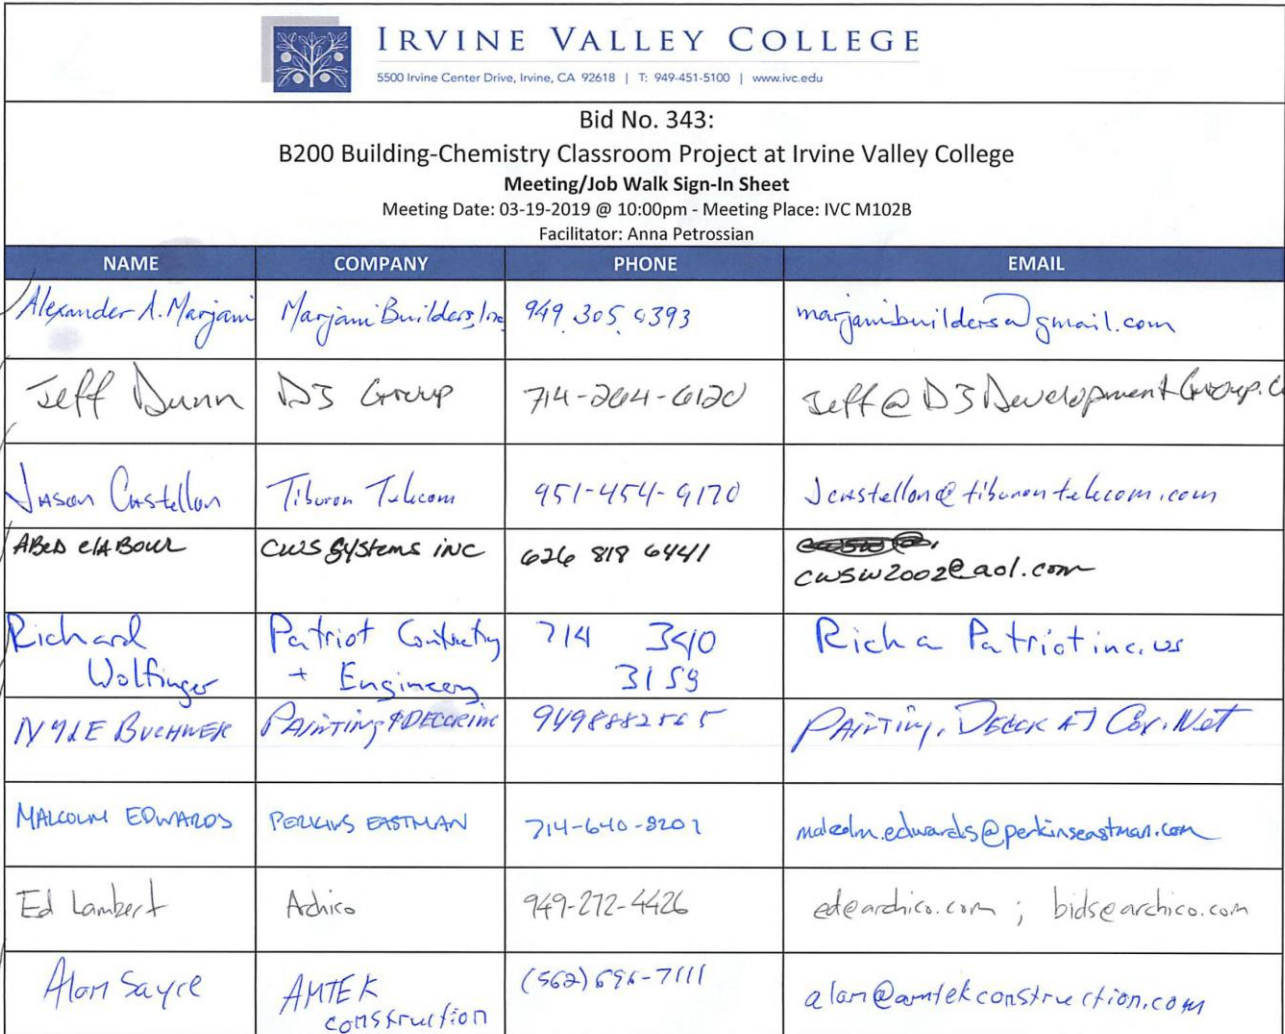 IRVINE VALLEY COLLEGE
5500 Irvine Center Drive, Irvine, CA 92618 | T: 949-451-5100 | www.ivc.edu
Bid No. 343:
B200 Building-Chemistry Classroom Project at Irvine Valley College
Meeting/Job Walk Sign-In Sheet
Meeting Date: 03-19-2019 @ 10:00pm - Meeting Place: IVC M102B
Facilitator: Anna Petrossian
NAME COMPANY PHONE EMAIL
Alexander A. Marjani Marjani Builders, Inc 949.305. marjanibuilders@gmail.com
Jeff Dunn D3 Group 714-264-6120 Jeff@D3DevelopmentGroup.c
Jason Castellon Tiburon Telecom 951-454-9170 Jcastellon@tiburontelecom.com
ABED CWS SYSTEMS INC 626 818 6441
cwsw2002@aol.com
Richard Patriot Contracting 714 340 Rich a Patriotinc.us
Wolfinger + Engineering 3159
PAINTING & DECORING PAINTING, DECOR AT Cox.Net
MALCOLM EDWARDS PERKINS EASTMAN 714-640-8201 malcolm.edwards@perkinseastman.com
Ed Lambert Archico 949-272-4426 ed@archico.com ; bids@archico.com
Alan Sayce AMTEK (562) 696-7111 alan@amtekconstruction.com
construction